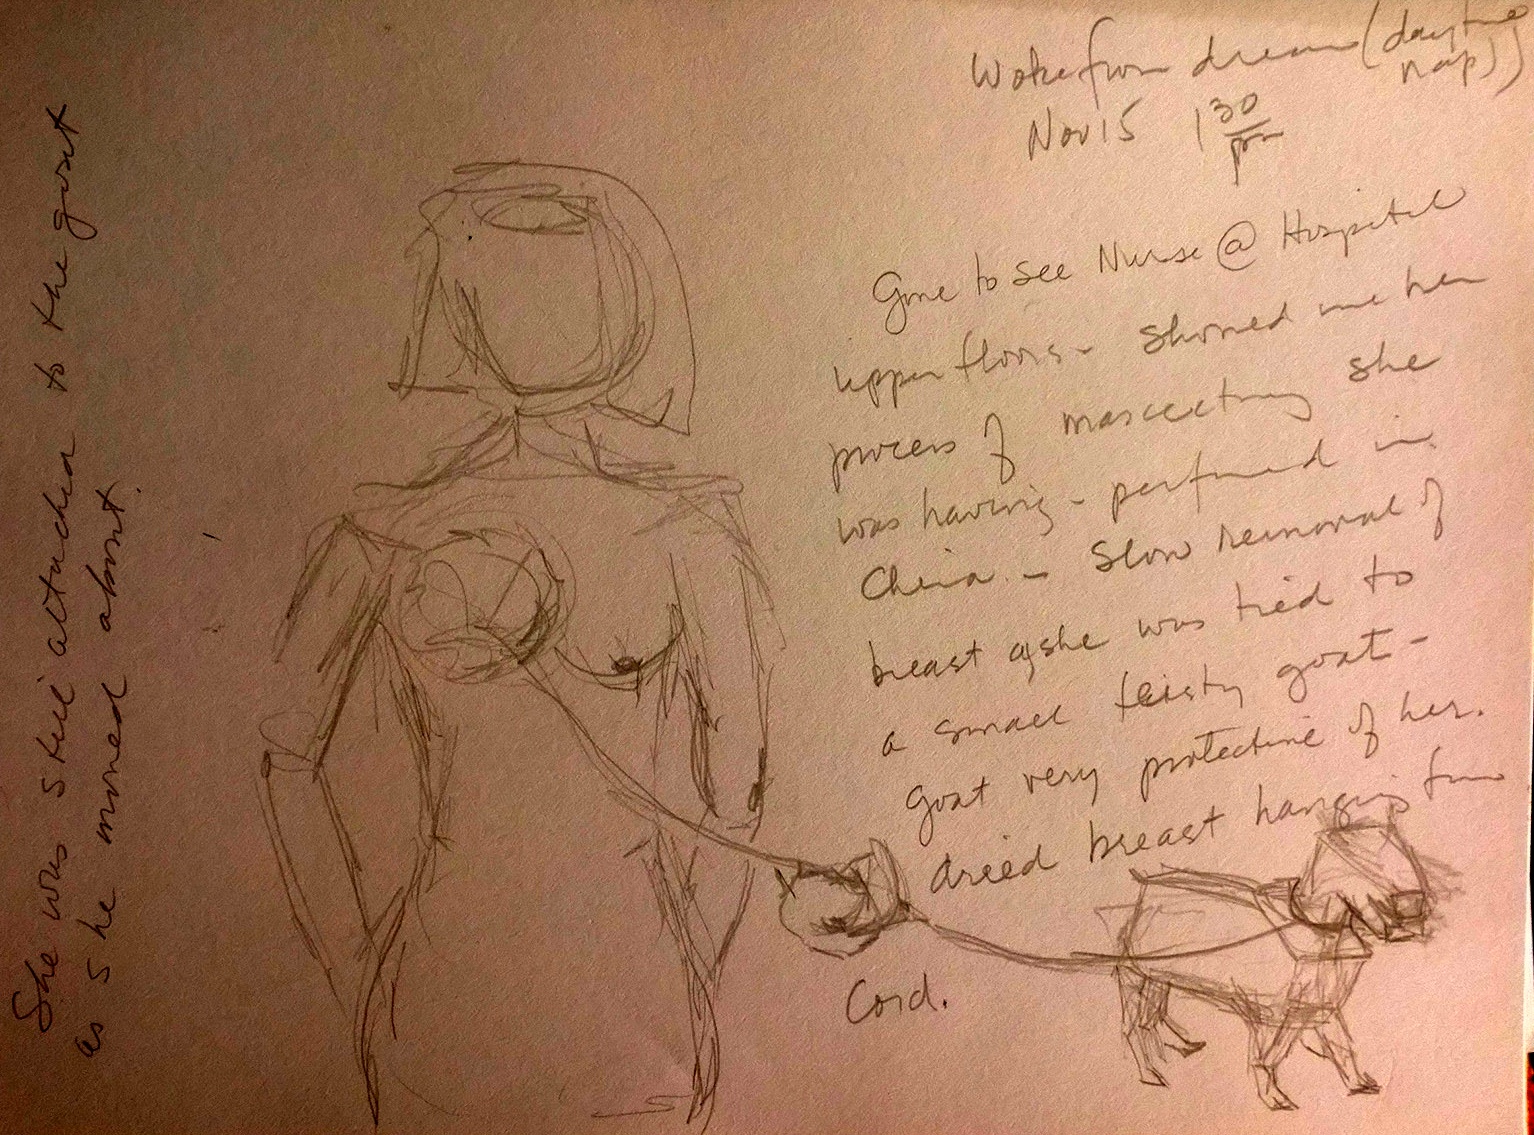 Woke from dream (daytime
nap))
Nov 15 1 30
pm
Gone to see Nurse @ Hospital
upper floors - showed me her
process of mascectomy she
was having - performed in
China - Slow removal of
breast as she was tied to
a small feisty goat -
goat very protective of her.
dried breast hanging from
Cord.
She was still attached to the goat
as she moved about.